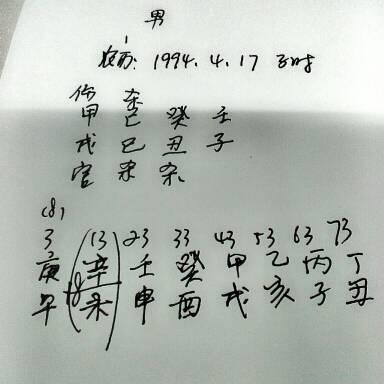 男
农历: 1994. 4. 17 子时
伤 杀
甲 己 癸 壬
戌 巳 丑 子
官 杀
(8)
3 13 23 33 43 53 63 73
庚 辛 壬 癸 甲 乙 丙 丁
午 未 申 酉 戌 亥 子 丑